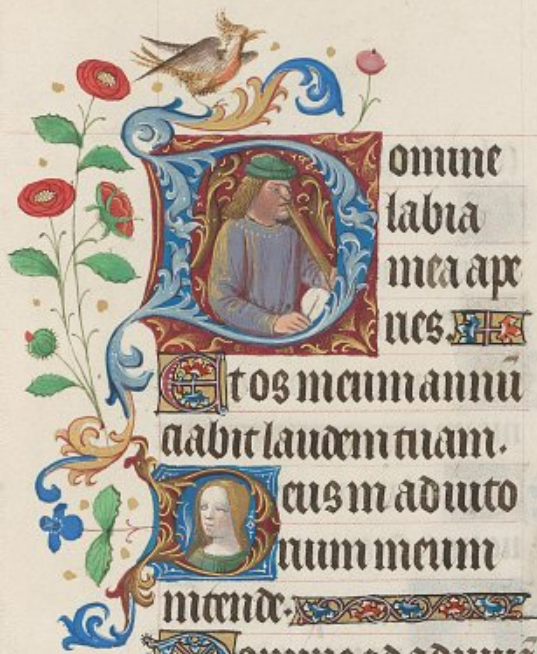 Domine
labia
mea ape
ries.
Et os meum annū
ciabit laudem tuam.
Deus in adiuto
rium meum
intende.